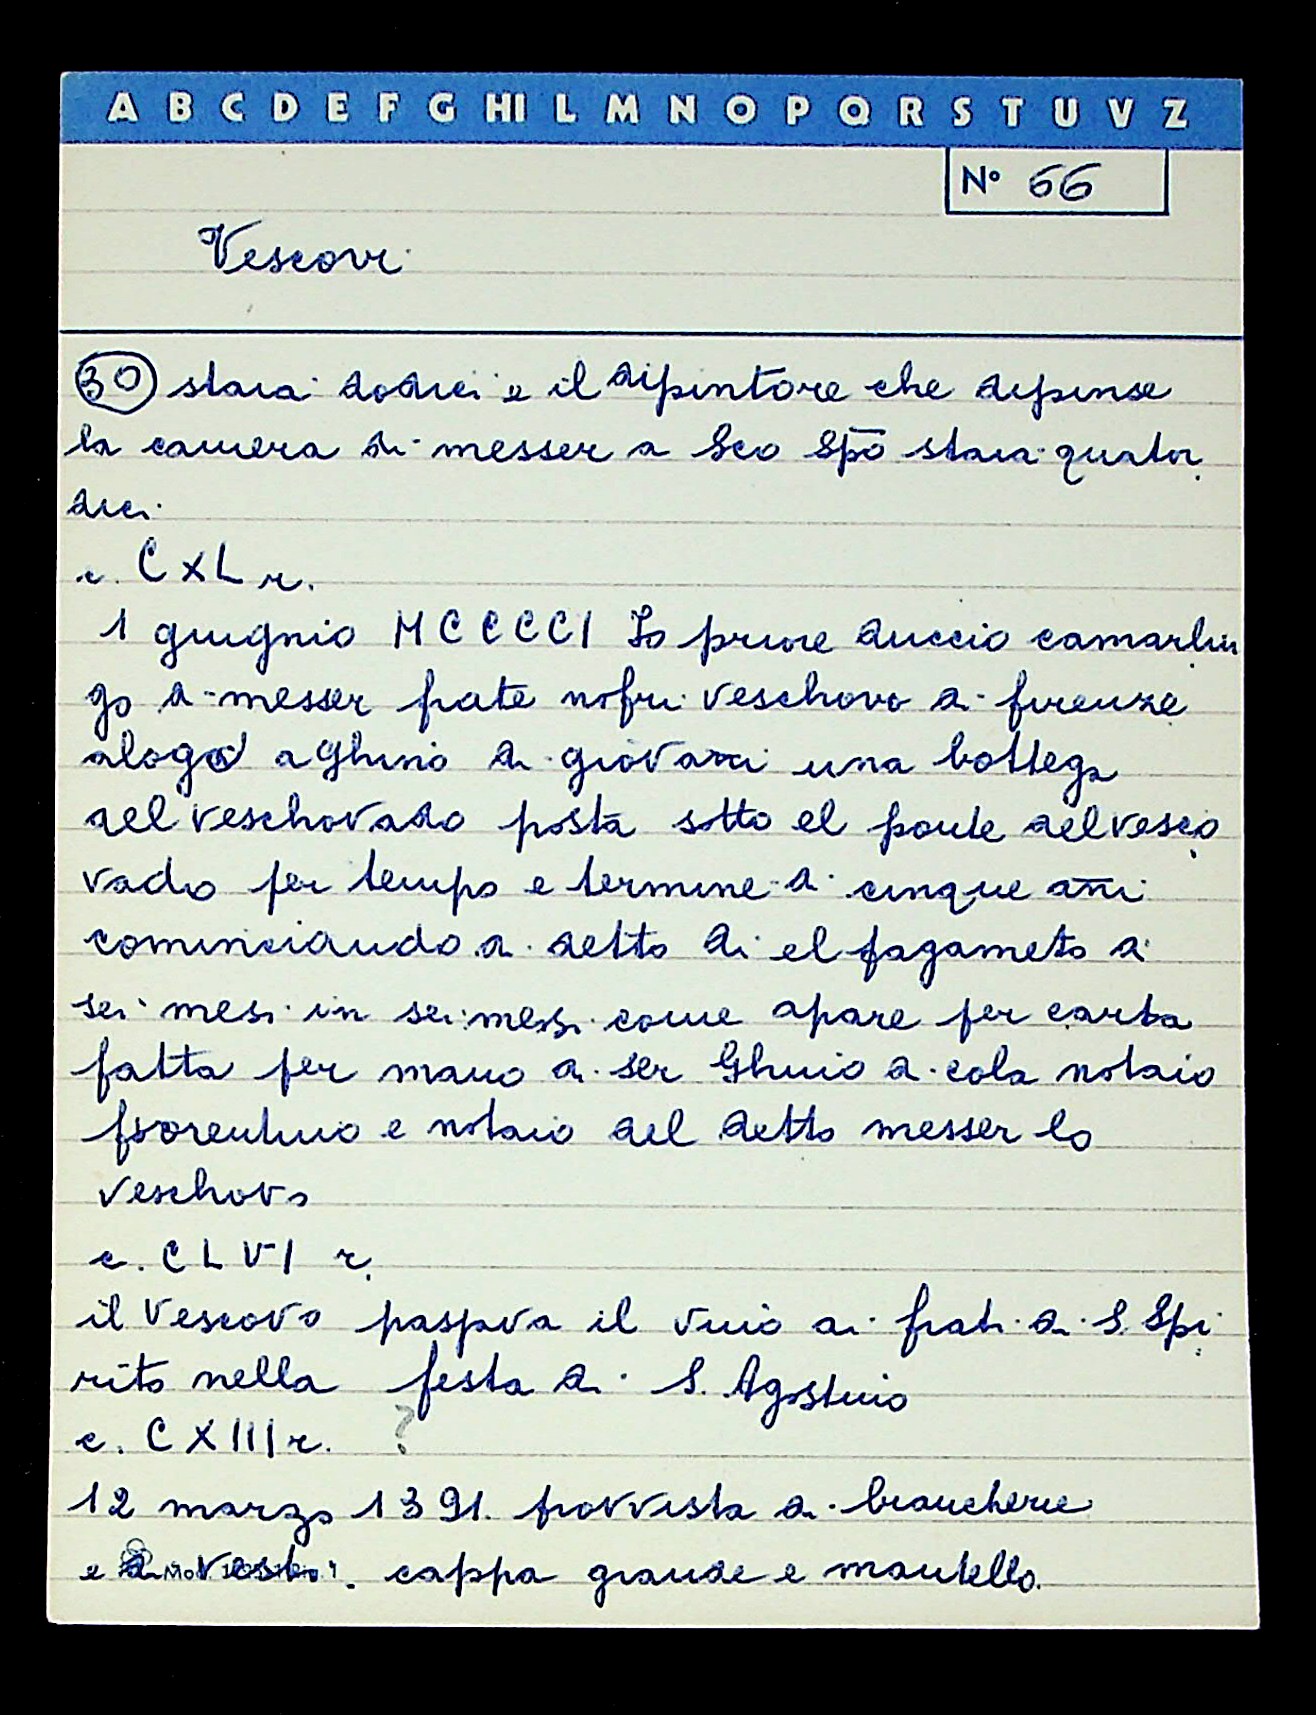 A B C D E F G HI L M N O P Q R S T U V Z
N° 66
Vescovi
30 staia dodici e il dipintore che dipinse
la camera di messer a Sco Spō staia quator
dici
c. CXL r.
1 giugnio MCCCCI Io priore duccio camarlin
go di messer frate nofri veschovo di firenze
alogò a Ghino di giovanni una bottega
del veschovado posta sotto el ponte del vesco
vado per tempo e termine di cinque anni
cominciando a detto di el pagameto di
sei mesi in sei mesi come apare per carta
fatta per mano di ser Ghino di cola notaio
fiorentino e notaio del detto messer lo
veschovo
c. CLVI r.
il Vescovo pagava il vino ai frati di S. Spi
rito nella festa di S. Agostino
c. CXIII r. ?
12 marzo 1391. provvista di biancherie
e di vesti. cappa grande e mantello.